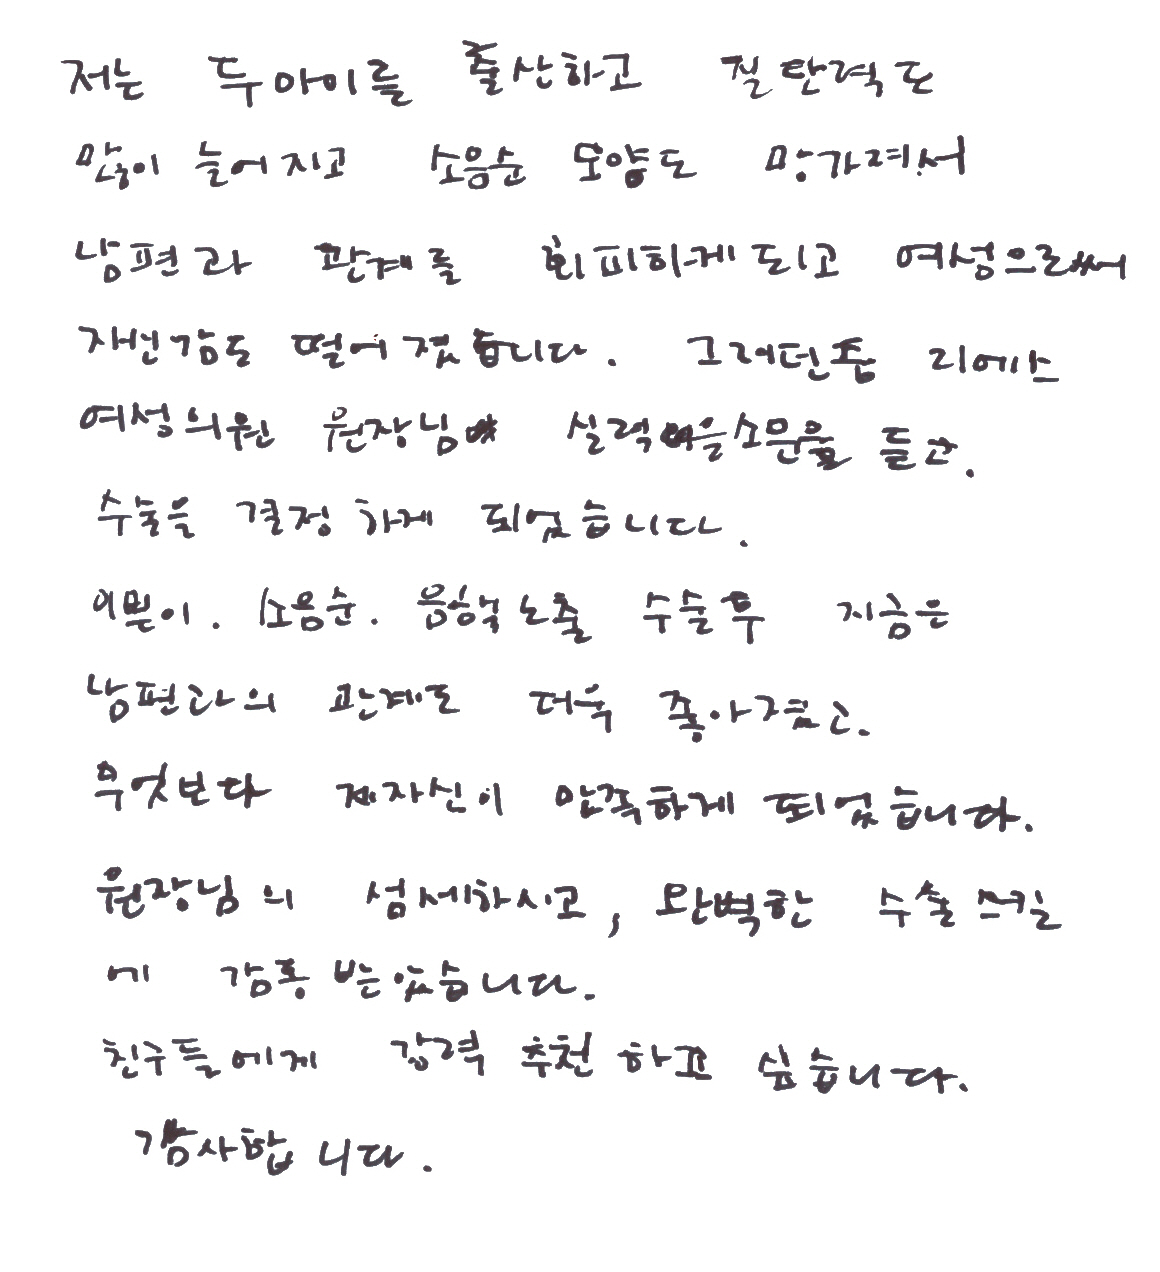 저는 두아이를 출산하고 질탄력도
많이 늘어지고 소음순 모양도 망가져서
남편과 관계를 회피하게되고 여성으로써
자신감도 떨어졌습니다. 그러던중 리에스
여성의원 원장님 실력 소문을 듣고.
수술을 결정하게 되었습니다.
이쁜이. 소음순. 음핵노출 수술후 지금은
남편과의 관계도 더욱 좋아졌고.
무엇보다 제자신이 만족하게 되었습니다.
원장님의 섬세하시고, 완벽한 수술스킬
에 감동 받았습니다.
친구들에게 강력 추천하고 싶습니다.
감사합니다.